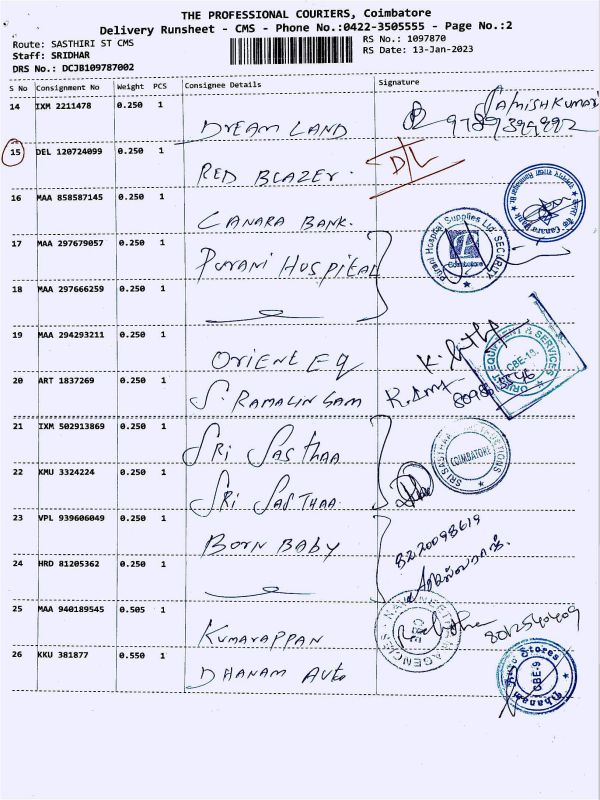 THE PROFESSIONAL COURIERS, Coimbatore
Delivery Runsheet - CMS - Phone No.:0422-3505555 - Page No.:2
Route: SASTHIRI ST CMS
RS No.: 1097870
Staff: SRIDHAR
RS Date: 13-Jan-2023
DRS No.: DCJB109787002
S No Consignment No Weight PCS Consignee Details Signature
14 IXM 2211478 0.250 1 DREAM LAND
15 DEL 120724099 0.250 1 RED BLAZER. D/L
16 MAA 858587145 0.250 1 CANARA BANK.
Canara Bank
17 MAA 297679057 0.250 1 PURANI HOSPITAL
Purani Hospital Supplies Ltd SECURITY
Coimbatore
18 MAA 297666259 0.250 1
19 MAA 294293211 0.250 1 ORIENT EQ
EQUIPMENT & SERVICES
20 ART 1837269 0.250 1 S. RAMALINGAM
21 IXM 502913869 0.250 1 SRI SASTHAA
SRI SASTHAA
COIMBATORE
22 KMU 3324224 0.250 1 SRI SASTHAA.
23 VPL 939606049 0.250 1 BORN BABY
8220098619
24 HRD 81205362 0.250 1
25 MAA 940189545 0.505 1 KUMARAPPAN
8012540409
AGENCIES
26 KKU 381877 0.550 1 DHANAM Auto
Dhanam Auto Stores
CBE-9